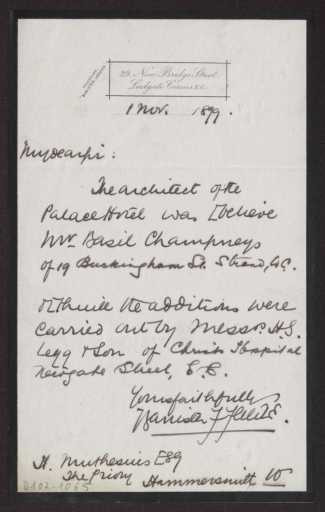 29, New Bridge Street,
Ludgate Circus E.C.
1 Nov. 1899.
My dear Sir:
The architect of the
Palace Hotel was I believe
Mr. Basil Champneys
of 19 Buckingham St. Strand, W.C.
& I think the additions were
carried out by Messrs. H.S.
Legg & Son of Christs Hospital
Newgate Street, E.C.
Yours faithfully
Banister F Fletcher.
H. Muthesius Esq
The Priory
Hammersmith W
D102-1065